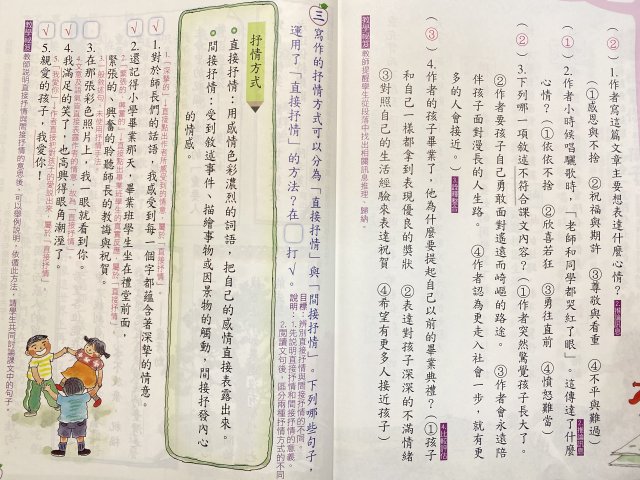 (②) 1.作者寫這篇文章主要想表達什麼心情？
(①感恩與不捨 ②祝福與期許 ③尊敬與看重 ④不平與難過)
(①) 2.作者小時候唱驪歌時，「老師和同學都哭紅了眼」。這傳達了什麼
心情？(①依依不捨 ②欣喜若狂 ③勇往直前 ④憤怒難當)
(②) 3.下列哪一項敘述不符合課文內容？(①作者突然驚覺孩子長大了。
②作者要孩子自己勇敢面對遙遠而崎嶇的路途。 ③作者會永遠陪
伴孩子面對漫長的人生路。 ④作者認為更走入社會一步，就有更
多的人會接近。)
(③) 4.作者的孩子畢業了，他為什麼要提起自己以前的畢業典禮？(①孩子
和自己一樣都拿到表現優良的獎狀 ②表達對孩子深深的不滿情緒
③對照自己的生活經驗來表達祝賀 ④希望有更多人接近孩子)
教師提醒學生從段落中找出相關訊息推理、歸納。
三 寫作的抒情方式可以分為「直接抒情」與「間接抒情」。下列哪些句子，
運用了「直接抒情」的方法？在□打✓。
目標：辨別直接抒情與間接抒情的不同。
說明：1.先說明直接抒情和間接抒情的意義。
2.閱讀文句後，區分兩種抒情方式的不同
抒情方式
•直接抒情：用感情色彩濃烈的詞語，把自己的感情直接表露出來。
•間接抒情：受到敘述事件、描繪事物或因景物的觸動，間接抒發內心
的情感。
✓ 1.對於師長們的話語，我感受到每一個字都蘊含著深摯的情意。
✓ 2.還記得小學畢業那天，畢業班學生坐在禮堂前面，
緊張的、興奮的聆聽師長的教誨與祝賀。
3.在那張彩色照片上，我一眼就看到你。
✓ 4.我滿足的笑了，也高興得眼角潮溼了。
✓ 5.親愛的孩子，我愛你！
教師說明直接抒情與間接抒情的意思後，可以舉例說明，依循此方法，請學生共同討論課文中的句子。